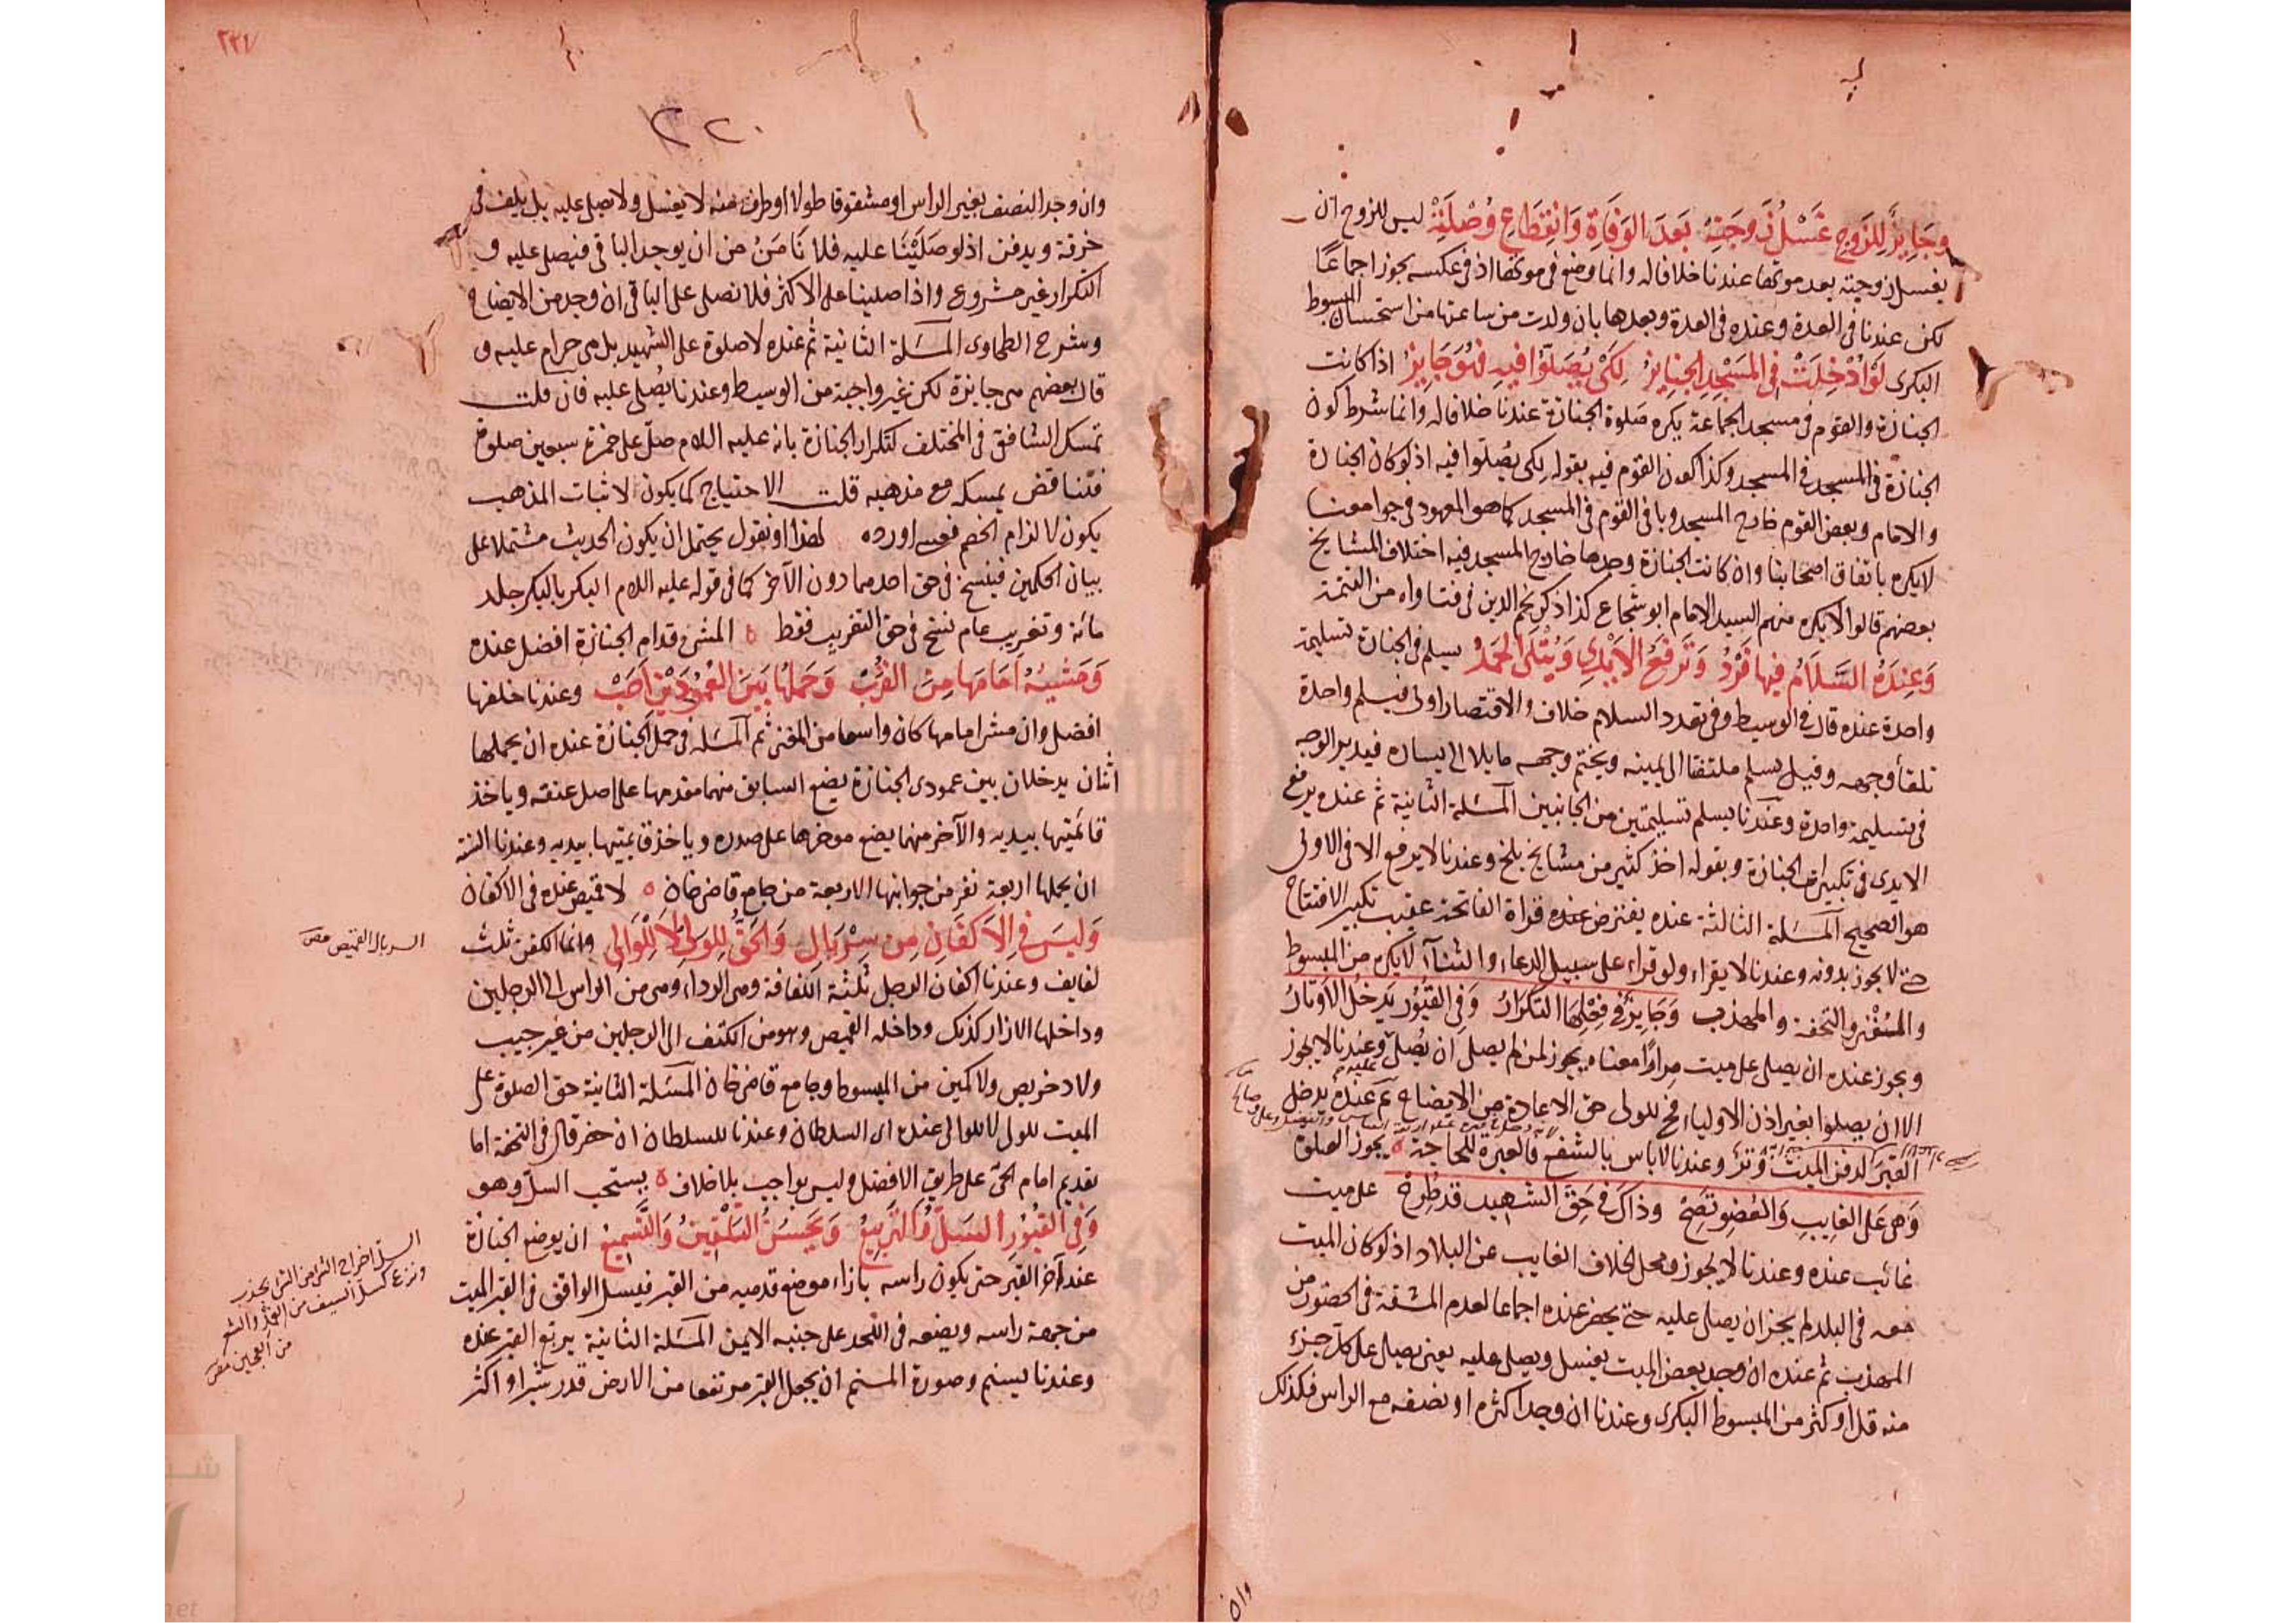 وجايز للزوج غسل زوجته بعد الوفاة وانقطاع وصلته ليس للزوج ان
يغسل زوجته بعد موتها عندنا خلافا له وانما وضع في موتها اذ في عكسه يجوز اجماعا
لكن عندنا في العدة وعنده في العدة وبعدها بان ولدت من ساعتها من استحسان المبسوط
البكرى لو ادخلت في المسجد الجنايز لكى يصلوا فيه فهو جايز اذا كانت
الجنازة والقوم في مسجد الجماعة يكره صلوة الجنازة عندنا خلافا له وانما شرط كون
الجنازة في المسجد في المسجد وكذا كون القوم فيه بقوله لكى يصلوا فيه اذ لو كان الجنازة
والامام وبعض القوم خارج المسجد وباقى القوم في المسجد كما هو المعهود في جوامعنا
لا يكره باتفاق اصحابنا وان كانت الجنازة وحدها خارج المسجد فيه اختلاف المشايخ
بعضهم قالوا لا يكره منهم السيد الامام ابو شجاع كذا ذكر نجم الدين في فتاواه من التتمة
وعنده السلام فيها فرد وترفع الايدى ويتلى الحمد يسلم في الجنازة تسليمة
واحدة عنده قال في الوسيط وفي تعدد السلام خلاف والاقتصار اولى فيسلم واحدة
تلقا وجهه وقيل يسلم ملتفتا الى يمينه ويختم وجهه مايلا الى يساره فيدير الوجه
في تسليمة واحدة وعندنا يسلم تسليمتين من الجانبين المسئلة الثانية ثم عنده يرفع
الايدى في تكبيرات الجنازة وبقوله اخذ كثير من مشايخ بلخ وعندنا لا يرفع الا في الاولى
هو الصحيح المسئلة الثالثة عنده يفترض عنده قراة الفاتحة عقيب تكبير الافتتاح
حتى لا يجوز بدونه وعندنا لا يقراء ولو قراء على سبيل الدعاء والثناء لا يكره من المبسوط
والمنتقى والتحفة والمهذب وجايز في فعلها التكرار وفي القبور يدخل الاوتار
ويجوز عنده ان يصلى على ميت مرارا معناه يجوز لمن لم يصل ان يصل وعندنا لا يجوز
الا ان يصلوا بغير اذن الاولياء فح للولى حق الاعادة من الايضاح ثم عنده يدخل
القبر لدفن الميت وتر وعندنا لا باس بالشفع فالعبرة للحاجة يجوز الصلوة
وهى على الغايب والعضو تصح وذاك في حق الشهيد قد طرح على ميت
غائب عنده وعندنا لا يجوز ومحل الخلاف الغايب عن البلاد اذ لو كان الميت
معه في البلد لم يجز ان يصلى عليه حتى يحضر عنده اجماعا لعدم المشقة في الحضور من
المهذب ثم عنده ان وجد بعض الميت يغسل ويصلى عليه يعنى يصلى على كل جزء
منه قل او كثر من المبسوط البكرى وعندنا ان وجد اكثره او نصفه مع الراس فكذلك
وان
٢٢٠
وان وجد النصف بغير الراس او مشقوقا طولا او طرف منه لا يغسل ولا يصلى عليه بل يلف في
خرقة ويدفن اذ لو صلينا عليه فلا نامن من ان يوجد الباقى فيصلى عليه و
التكرار غير مشروع واذا صلينا على الاكثر فلا نصلى على الباقى ان وجد من الايضاح
وشرح الطحاوى المسئلة الثانية ثم عنده لا صلوة على الشهيد بل هى حرام عليه و
قال بعضهم هى جايزة لكن غير واجبة من الوسيط وعندنا يصلى عليه فان قلت
تمسك الشافعى في المختلف لتكرار الجنازة بانه عليه السلام صلى على حمزة سبعين صلوة
فتناقض تمسكه مع مذهبه قلت الاحتياج كما يكون لاثبات المذهب
يكون لالزام الخصم فعسى اورده لهذا او نقول يحتمل ان يكون الحديث مشتملا على
بيان الحكمين فينسخ في حق احدهما دون الآخر كما في قوله عليه السلام البكر بالبكر جلد
مائة وتغريب عام نسخ في حق التغريب فقط المشى قدام الجنازة افضل عنده
ومشيه امامها من القرب وحملها بين العمودين احب وعندنا خلفها
افضل وان مشى امامها كان واسعا من المغنى ثم المسئلة في حمل الجنازة عنده ان يحملها
اثنان يدخلان بين عمودى الجنازة يضع السابق منهما مقدمها على اصل عنقه وياخذ
قائمتيها بيديه والآخر منهما يضع موخرها على صدره وياخذ قائمتيها بيديه وعندنا السنة
ان يحملها اربعة نفر من جوانبها الاربعة من جامع قاضى خان لا قميص عنده في الاكفان
وليس في الاكفان من سربال والحق للولى لا للوالى وانما الكفن ثلث
لفايف وعندنا اكفان الرجل ثلثة اللفافة وهى الرداء وهى من الراس الى الرجلين
وداخلها الازار كذلك وداخله القميص وهو من الكتف الى الرجلين من غير جيب
ولا دخريص ولا كمين من المبسوط وجامع قاضى خان المسئلة الثانية حق الصلوة على
الميت للولى لا للوالى عنده اى السلطان وعندنا للسلطان ان حضر قال في التحفة اما
تقديم امام الحى على طريق الافضل وليس بواجب بلا خلاف يستحب السل وهو
وفي القبور السل والتربيع ويحسن التلقين والتسميع ان يوضع الجنازة
عند آخر القبر حتى يكون راسه بازاء موضع قدميه من القبر فيسل الواقف في القبر الميت
من جهة راسه ويضعه في اللحد على جنبه الايمن المسئلة الثانية يربع القبر عنده
وعندنا يسنم وصورة المسنم ان يجعل القبر مرتفعا من الارض قدر شبر او اكثر
السربال القميص مص
السل اخراج الشئ من الشئ بجذب
ونزع كسل السيف من الغمد والشعر
من العجين مص